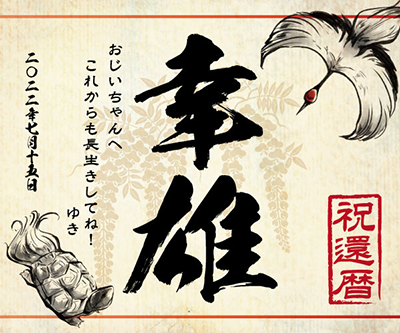 幸雄
おじいちゃんへ
これからも長生きしてね！
ゆき
二〇二二年七月十五日
祝還暦